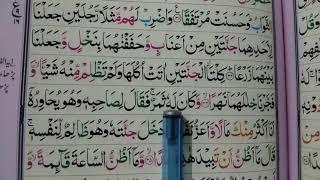 الثَّوَابُ وَحَسُنَتْ مُرْتَفَقًا وَاضْرِبْ لَهُمْ مَّثَلًا رَّجُلَيْنِ جَعَلْنَا
لِاَحَدِهِمَا جَنَّتَيْنِ مِنْ اَعْنَابٍ وَّحَفَفْنٰهُمَا بِنَخْلٍ وَّجَعَلْنَا
بَيْنَهُمَا زَرْعًا كِلْتَا الْجَنَّتَيْنِ اٰتَتْ اُكُلَهَا وَلَمْ تَظْلِمْ مِّنْهُ شَيْـًٔا وَّ
فَجَّرْنَا خِلٰلَهُمَا نَهَرًا وَّكَانَ لَهٗ ثَمَرٌ فَقَالَ لِصَاحِبِهٖ وَهُوَ يُحَاوِرُهٗٓ
اَنَا اَكْثَرُ مِنْكَ مَالًا وَّاَعَزُّ نَفَرًا وَدَخَلَ جَنَّتَهٗ وَهُوَ ظَالِمٌ لِّنَفْسِهٖ
قَالَ مَآ اَظُنُّ اَنْ تَبِيْدَ هٰذِهٖٓ اَبَدًا وَّمَآ اَظُنُّ السَّاعَةَ قَآئِمَةً وَّ